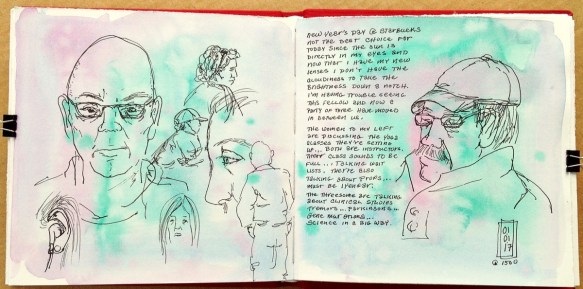 NEW YEAR'S DAY @ STARBUCKS
NOT THE BEST CHOICE FOR
TODAY SINCE THE SUN IS
DIRECTLY IN MY EYES AND
NOW THAT I HAVE MY NEW
LENSES I DON'T HAVE THE
CLOUDINESS TO TAKE THE
BRIGHTNESS DOWN A NOTCH.
I'M HAVING TROUBLE SEEING
THIS FELLOW AND NOW A
PARTY OF THREE HAVE MOVED
IN BETWEEN US.
THE WOMEN TO MY LEFT
ARE DISCUSSING THE YOGA
CLASSES THEY'RE SETTING
UP... BOTH ARE INSTRUCTORS.
THEIR CLASS SOUNDS TO BE
FULL... TALKING WAIT
LISTS. THEY'RE ALSO
TALKING ABOUT PROPS...
MUST BE IYENGAR.
THE THREESOME ARE TALKING
ABOUT CLINICAL STUDIES
TREMORS... PARKINSONS...
GENE MUTATIONS...
SCIENCE IN A BIG WAY.
01
01
17
@ 1500